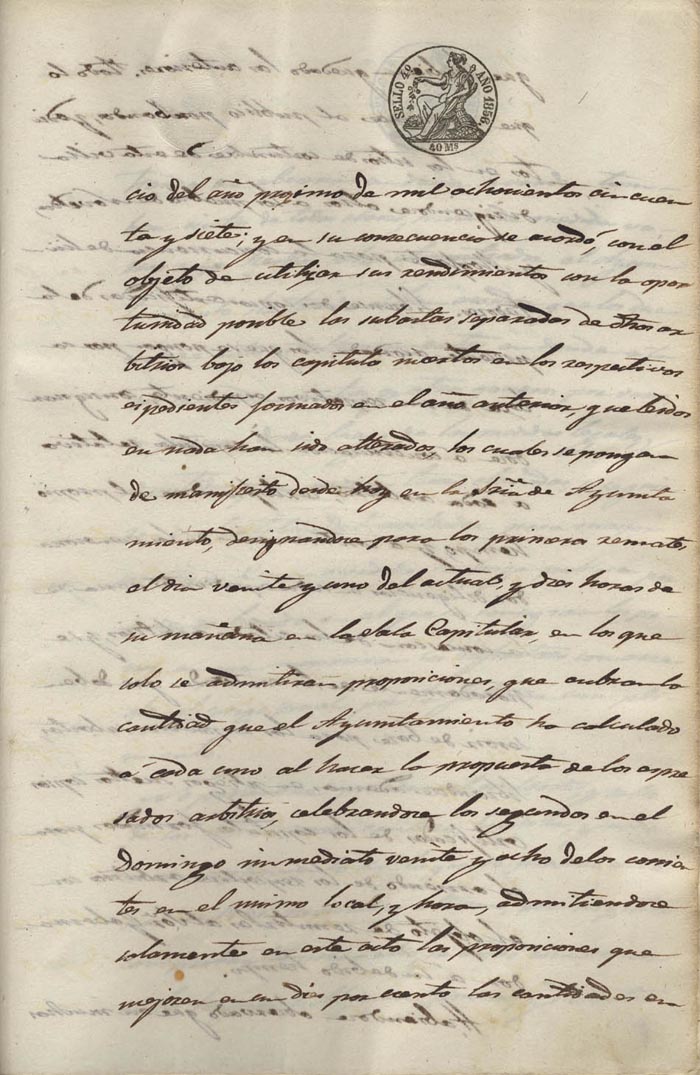 SELLO 4º AÑO 1856.
40 Ms
cio del año procsimo de mil ochocientos cincuen
ta y siete; y en su consecuencia se acordó, con el
objeto de utilizar sus rendimientos con la opor
tunidad posible las subastas separadas de dhos ar
bitrios bajo los capitulos insertos en los respectivos
espedientes formados en el año anterior, que leidos
en nada han sido alterados, los cuales se pongan
de manifiesto desde hoy en la Sría de Ayunta
miento, designandose para los primeros remates
el dia veinte y uno del actual, y dies horas de
su mañana en la Sala Capitular, en los que
solo se admitiran proposiciones, que cubran la
cantidad que el Ayuntamiento ha calculado
á cada uno al hacer la propuesta de los espre
sados arbitrios, celebrandose los segundos en el
Domingo inmediato veinte y ocho de los corrien
tes en el mismo local, y hora, admitiendose
solamente en este acto las proposiciones que
mejoren en un dies por ciento las cantidades en